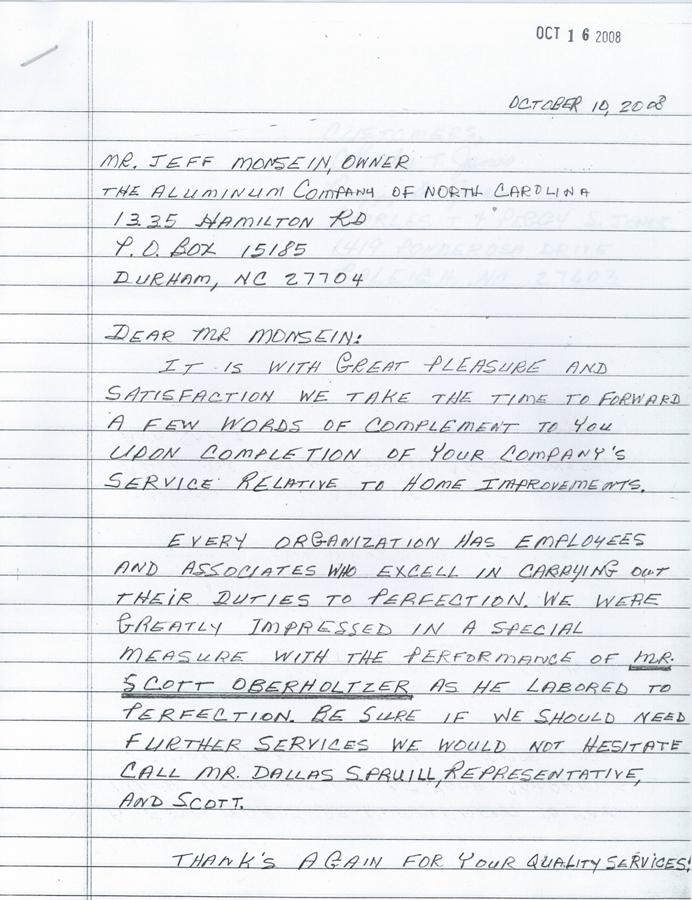 OCT 16 2008
OCTOBER 10, 2008
MR. JEFF MONSEIN, OWNER
THE ALUMINUM COMPANY OF NORTH CAROLINA
1335 HAMILTON RD
P.O. BOX 15185
DURHAM, NC 27704
DEAR MR MONSEIN:
IT IS WITH GREAT PLEASURE AND
SATISFACTION WE TAKE THE TIME TO FORWARD
A FEW WORDS OF COMPLEMENT TO YOU
UPON COMPLETION OF YOUR COMPANY'S
SERVICE RELATIVE TO HOME IMPROVEMENTS.
EVERY ORGANIZATION HAS EMPLOYEES
AND ASSOCIATES WHO EXCELL IN CARRYING OUT
THEIR DUTIES TO PERFECTION. WE WERE
GREATLY IMPRESSED IN A SPECIAL
MEASURE WITH THE PERFORMANCE OF MR.
SCOTT OBERHOLTZER AS HE LABORED TO
PERFECTION. BE SURE IF WE SHOULD NEED
FURTHER SERVICES WE WOULD NOT HESITATE
CALL MR. DALLAS SPRUILL, REPRESENTATIVE,
AND SCOTT.
THANK'S AGAIN FOR YOUR QUALITY SERVICES!